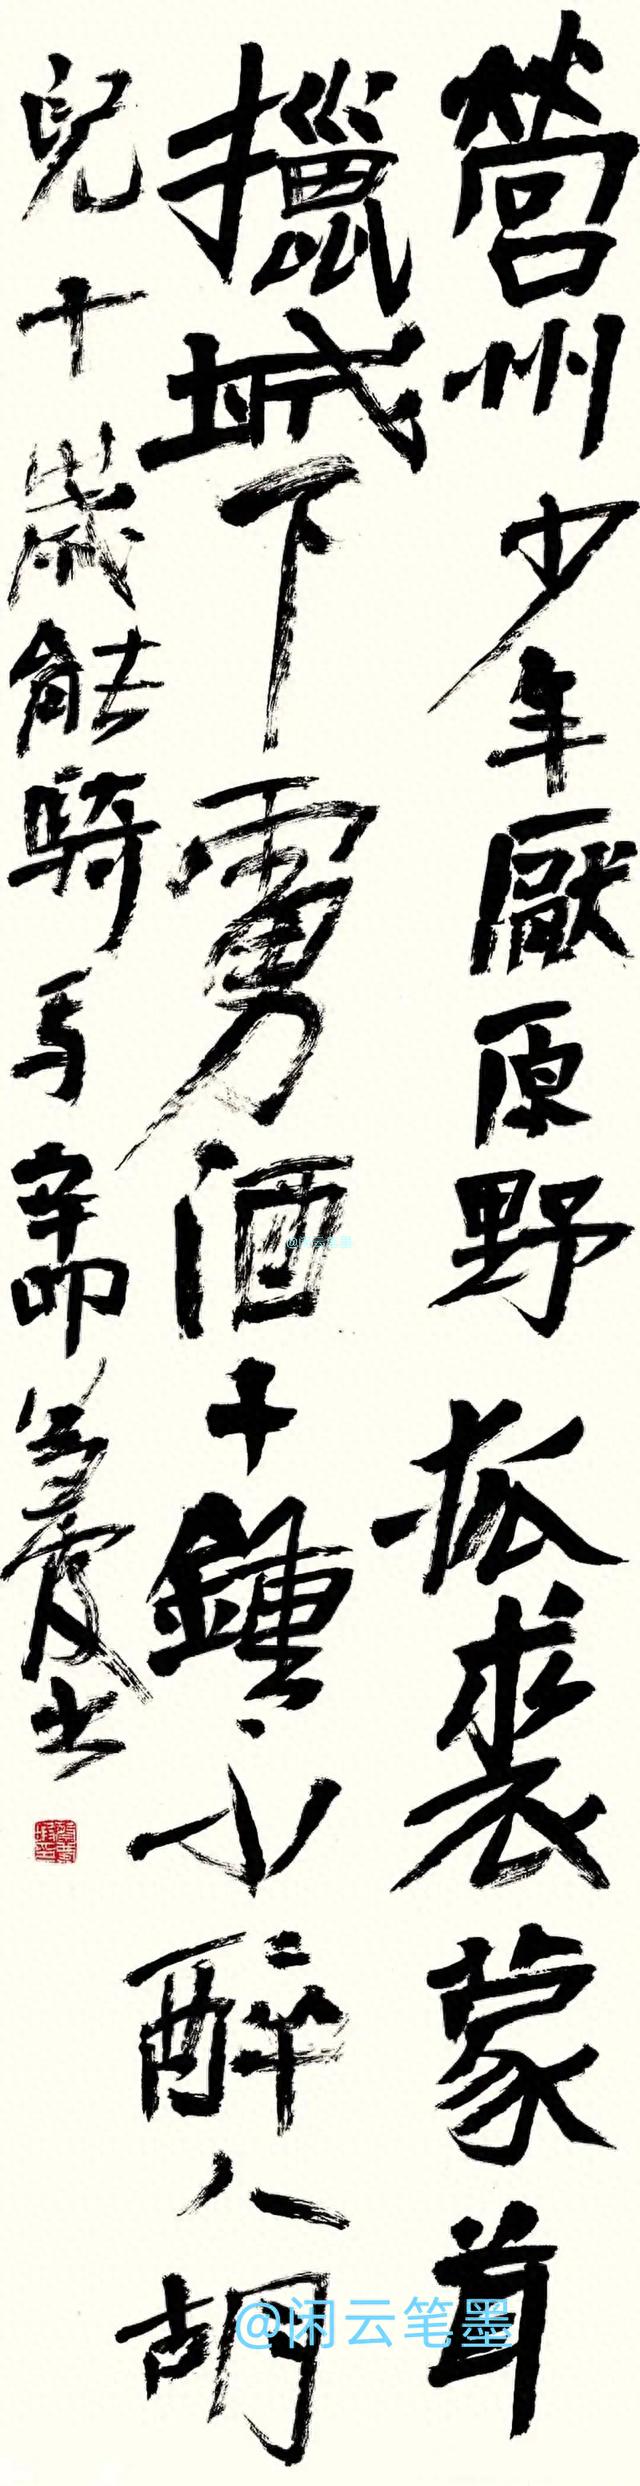 營州少年厭原野狐裘蒙茸
獵城下虜酒千鍾不醉人胡
兒十歲能騎馬辛卯书
@闲云笔墨
@闲云笔墨